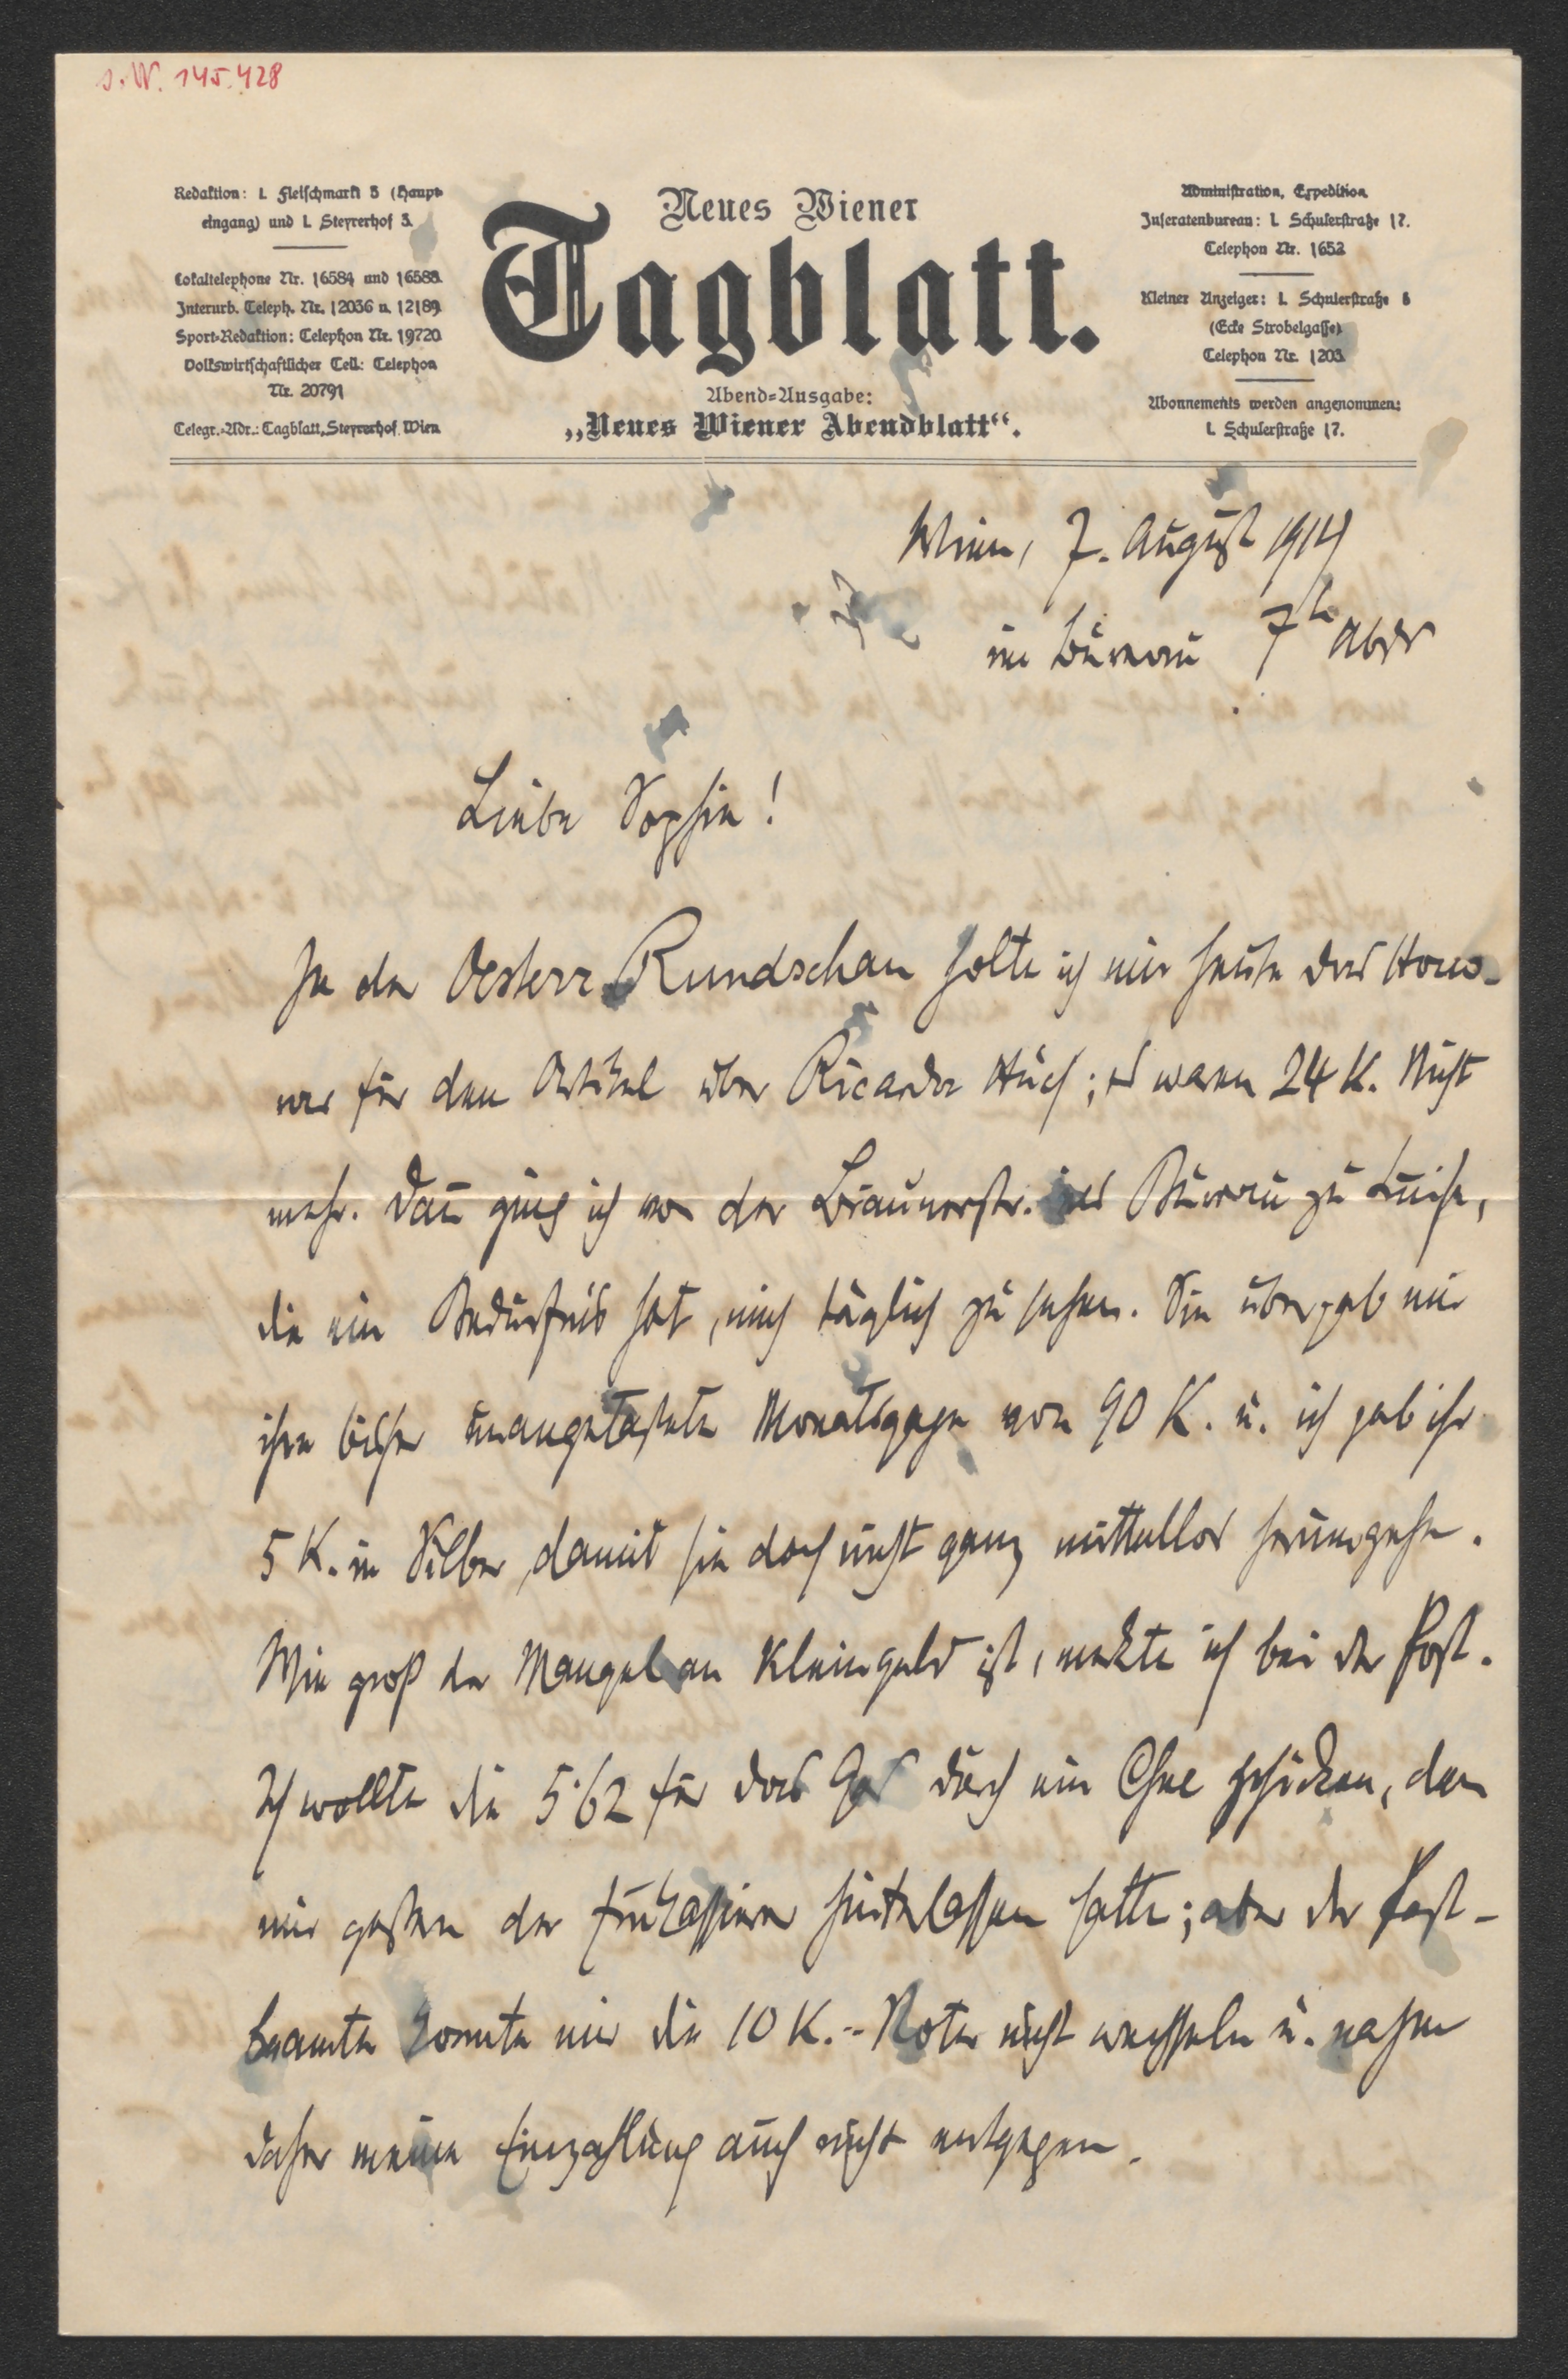 I. N. 145.428
Redaktion: I. Fleischmarkt 5 (Haupt-
eingang) und I. Steyrerhof 3.
Lokaltelephone Nr. 16584 und 16585.
Interurb. Teleph. Nr. 12036 u. 12189.
Sport-Redaktion: Telephon Nr. 19720.
Volkswirtschaftlicher Teil: Telephon
Nr. 20791
Telegr.-Adr.: Tagblatt, Steyrerhof, Wien
Neues Wiener
Tagblatt.
Abend-Ausgabe:
„Neues Wiener Abendblatt“.
Administration, Expedition
Inseratenbureau: I. Schulerstraße 17.
Telephon Nr. 1652
Kleiner Anzeiger: I. Schulerstraße 8
(Ecke Strobelgasse)
Telephon Nr. 1203.
Abonnements werden angenommen:
I. Schulerstraße 17.
Wien, 7. August 1914
im Bureau 7h Abds
Liebe Sophie!
In der Oesterr. Rundschau holte ich mir heute das Hono-
rar für den Artikel über Ricarda Huch; es waren 24 K. Nicht
mehr. Dann ging ich von der Bräunerstr. ins Bureau zu Luise,
die ein Bedürfnis hat, mich täglich zu sehen. Sie übergab mir
ihre bisher unangetastete Monatsgage von 90 K. u. ich gab ihr
5 K. in Silber, damit sie doch nicht ganz mittellos herumgehe.
Wie groß der Mangel an Kleingeld ist, merkte ich bei der Post.
Ich wollte die 5·62 für das Gas durch ein Chec schicken, den
mir gestern der Einkassierer hinterlassen hatte; aber der Post-
beamte konnte mir die 10 K.-Note nicht wechseln u. nahm
daher meine Einzahlung auch nicht entgegen.